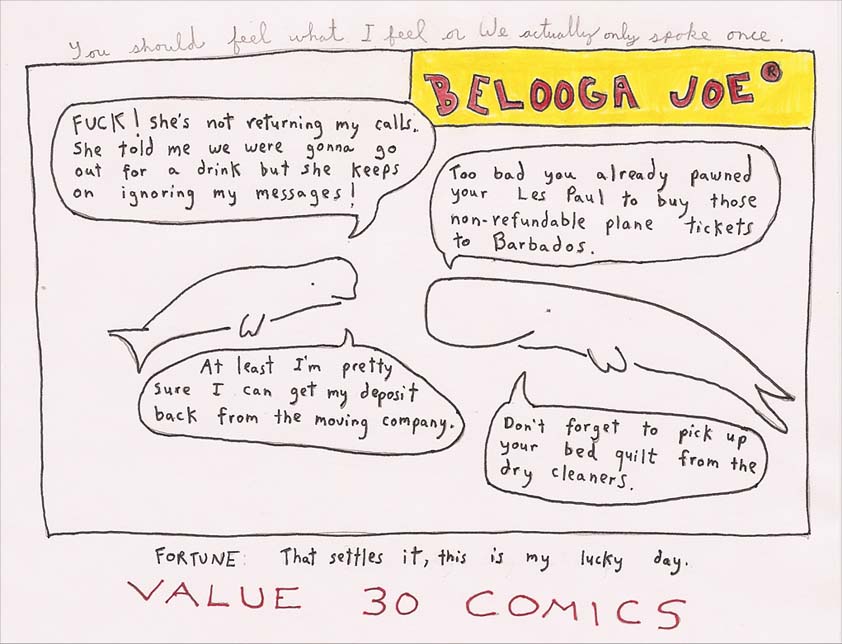 You should feel what I feel or We actually only spoke once.
BELOOGA JOE®
FUCK! She's not returning my calls.
She told me we were gonna go
out for a drink but she keeps
on ignoring my messages!
Too bad you already pawned
your Les Paul to buy those
non-refundable plane tickets
to Barbados.
At least I'm pretty
sure I can get my deposit
back from the moving company.
Don't forget to pick up
your bed quilt from the
dry cleaners.
FORTUNE: That settles it, this is my lucky day.
VALUE 30 COMICS